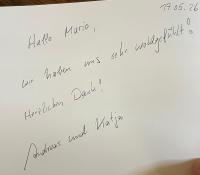 17.05.26
Hallo Mario,
wir haben uns sehr wohlgefühlt!
Herzlichen Dank!
Andreas und Katja